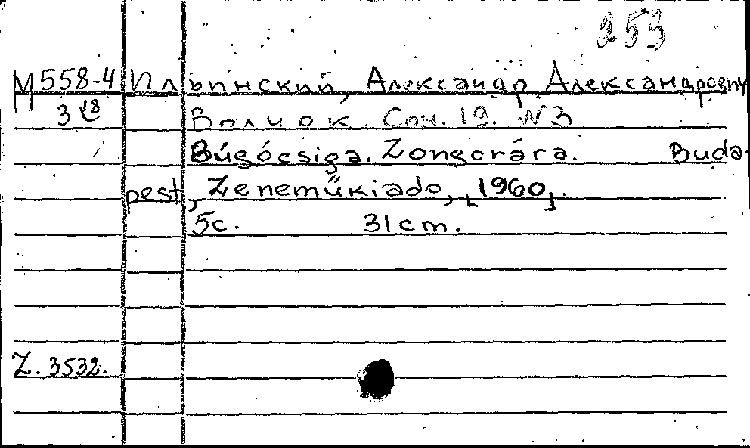 253
М 558-4 Ильинский, Александр Александрович
3
Волчок. Соч. 19. №3
Búgócsiga. Zongorára. Buda-
pest, Zeneműkiado, [1960].
5с. 31cm.
Z. 3532.